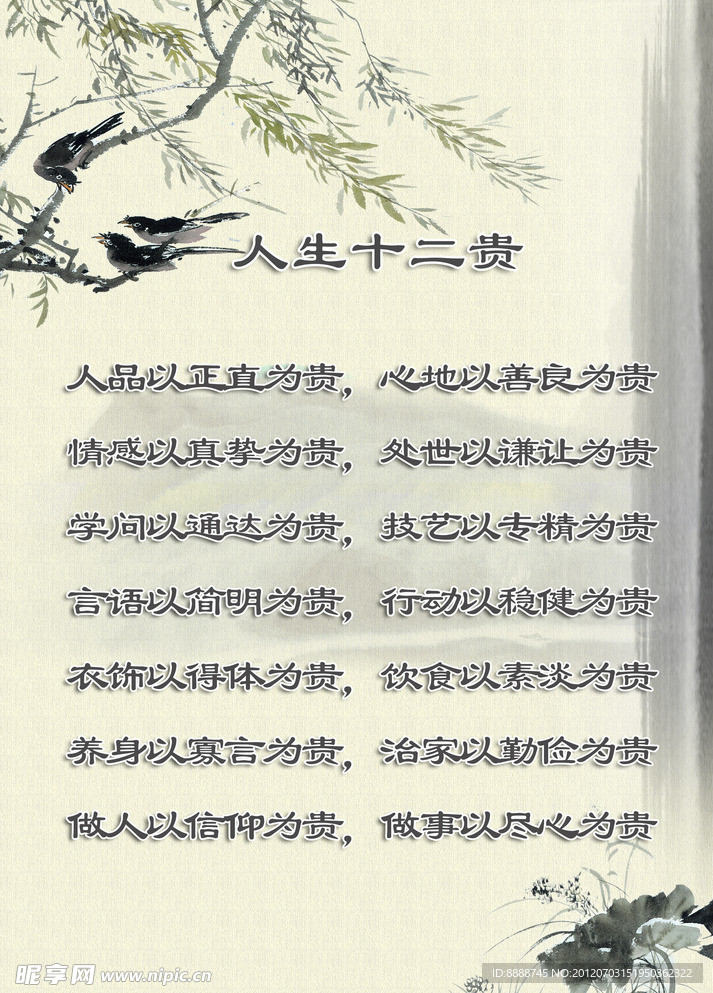 人生十二贵
人品以正直为贵，心地以善良为贵
情感以真挚为贵，处世以谦让为贵
学问以通达为贵，技艺以专精为贵
言语以简明为贵，行动以稳健为贵
衣饰以得体为贵，饮食以素淡为贵
养身以寡言为贵，治家以勤俭为贵
做人以信仰为贵，做事以尽心为贵
昵享网 www.nipic.cn
ID:8888745 NO:20120703151950362322